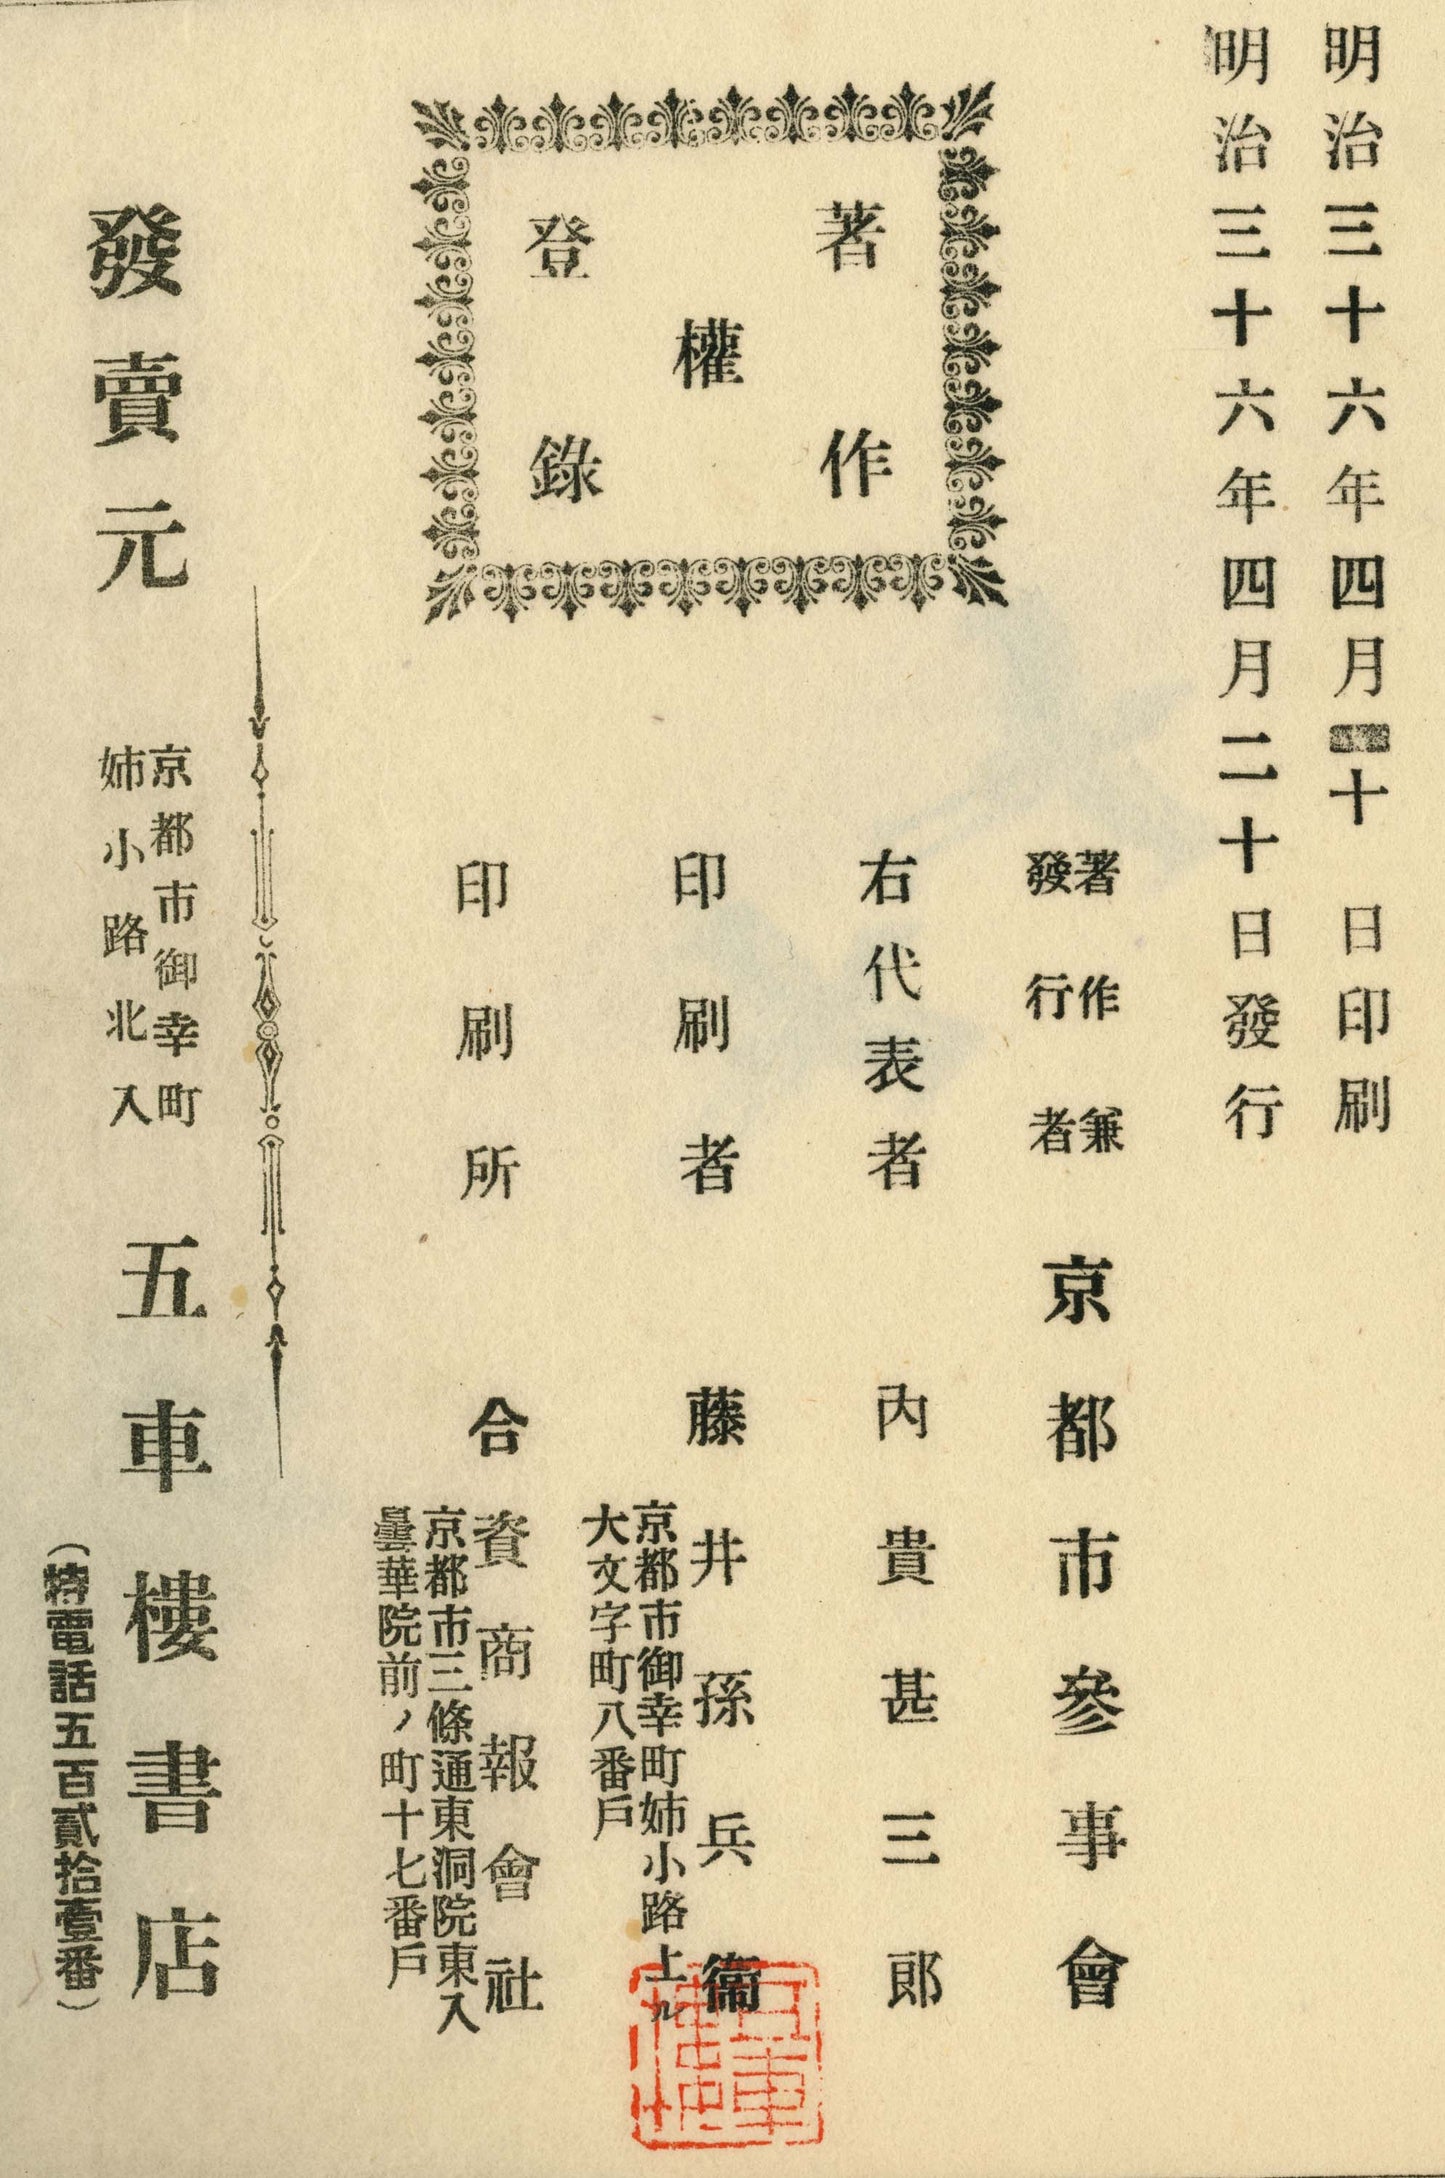 明治三十六年四月十日印刷
明治三十六年四月二十日發行
著作權登錄
著作兼
發行者
京都市參事會
右代表者 內貴甚三郎
印刷者 藤井孫兵衞
京都市御幸町姉小路上ル
大文字町八番戶
印刷所 合資商報會社
京都市三條通東洞院東入
曇華院前ノ町十七番戶
發賣元
京都市御幸町
姉小路北入
五車樓書店
(特電話五百貳拾壹番)